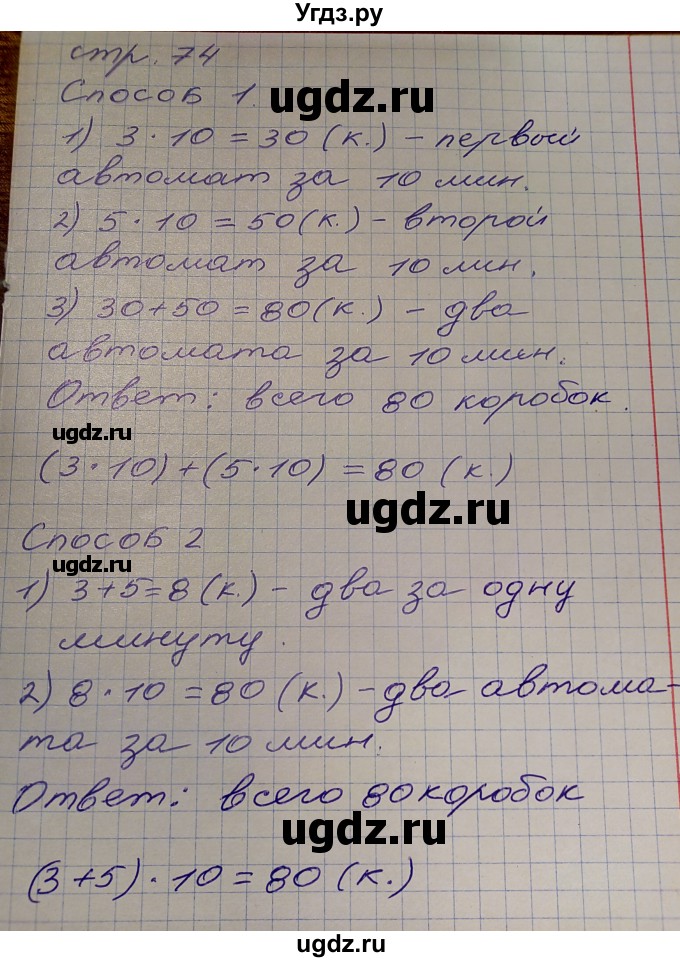 Угдз.ру
стр. 74
Способ 1.
ugdz.ru
1) 3 · 10 = 30 (к.) – первый
автомат за 10 мин.
2) 5 · 10 = 50 (к.) – второй
автомат за 10 мин.
3) 30 + 50 = 80 (к.) – два
автомата за 10 мин.
Ответ: всего 80 коробок.
ugdz.ru
(3 · 10) + (5 · 10) = 80 (к.)
ugdz.ru
Способ 2
ugdz.ru
1) 3 + 5 = 8 (к.) – два за одну
минуту.
2) 8 · 10 = 80 (к.) – два автома-
та за 10 мин.
Ответ: всего 80 коробок
ugdz.ru
(3 + 5) · 10 = 80 (к.)
ugdz.ru